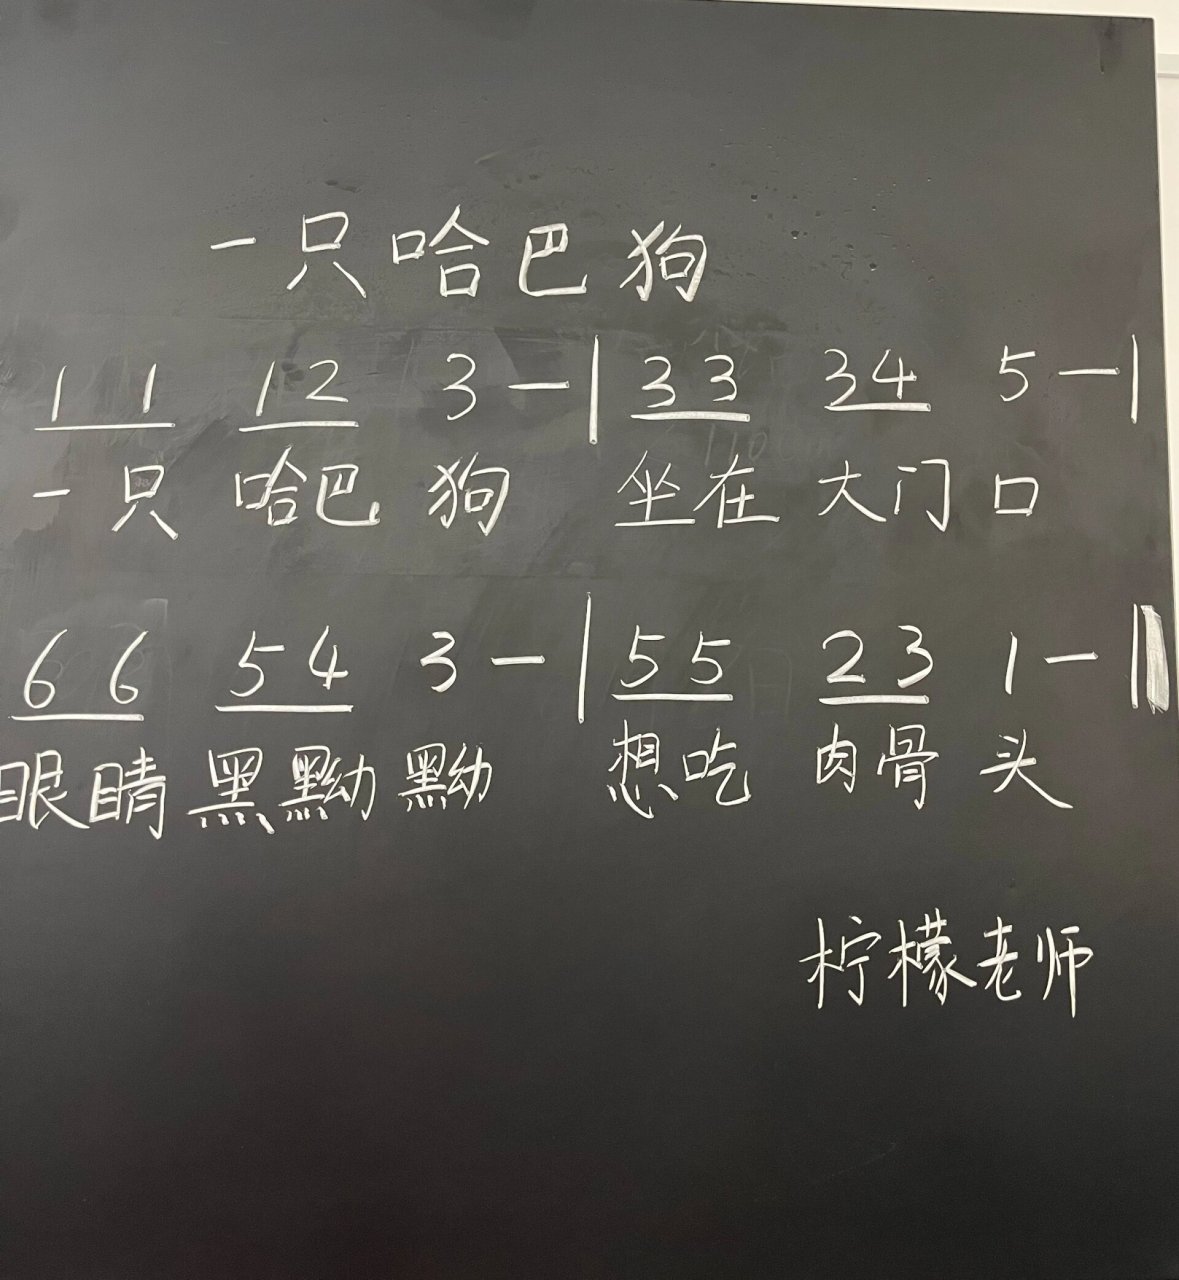 一只哈巴狗
1 1 1 2 3 - | 3 3 3 4 5 - |
一只哈巴狗 坐在大门口
6 6 5 4 3 - | 5 5 2 3 1 - ‖
眼睛黑黝黝 想吃肉骨头
柠檬老师